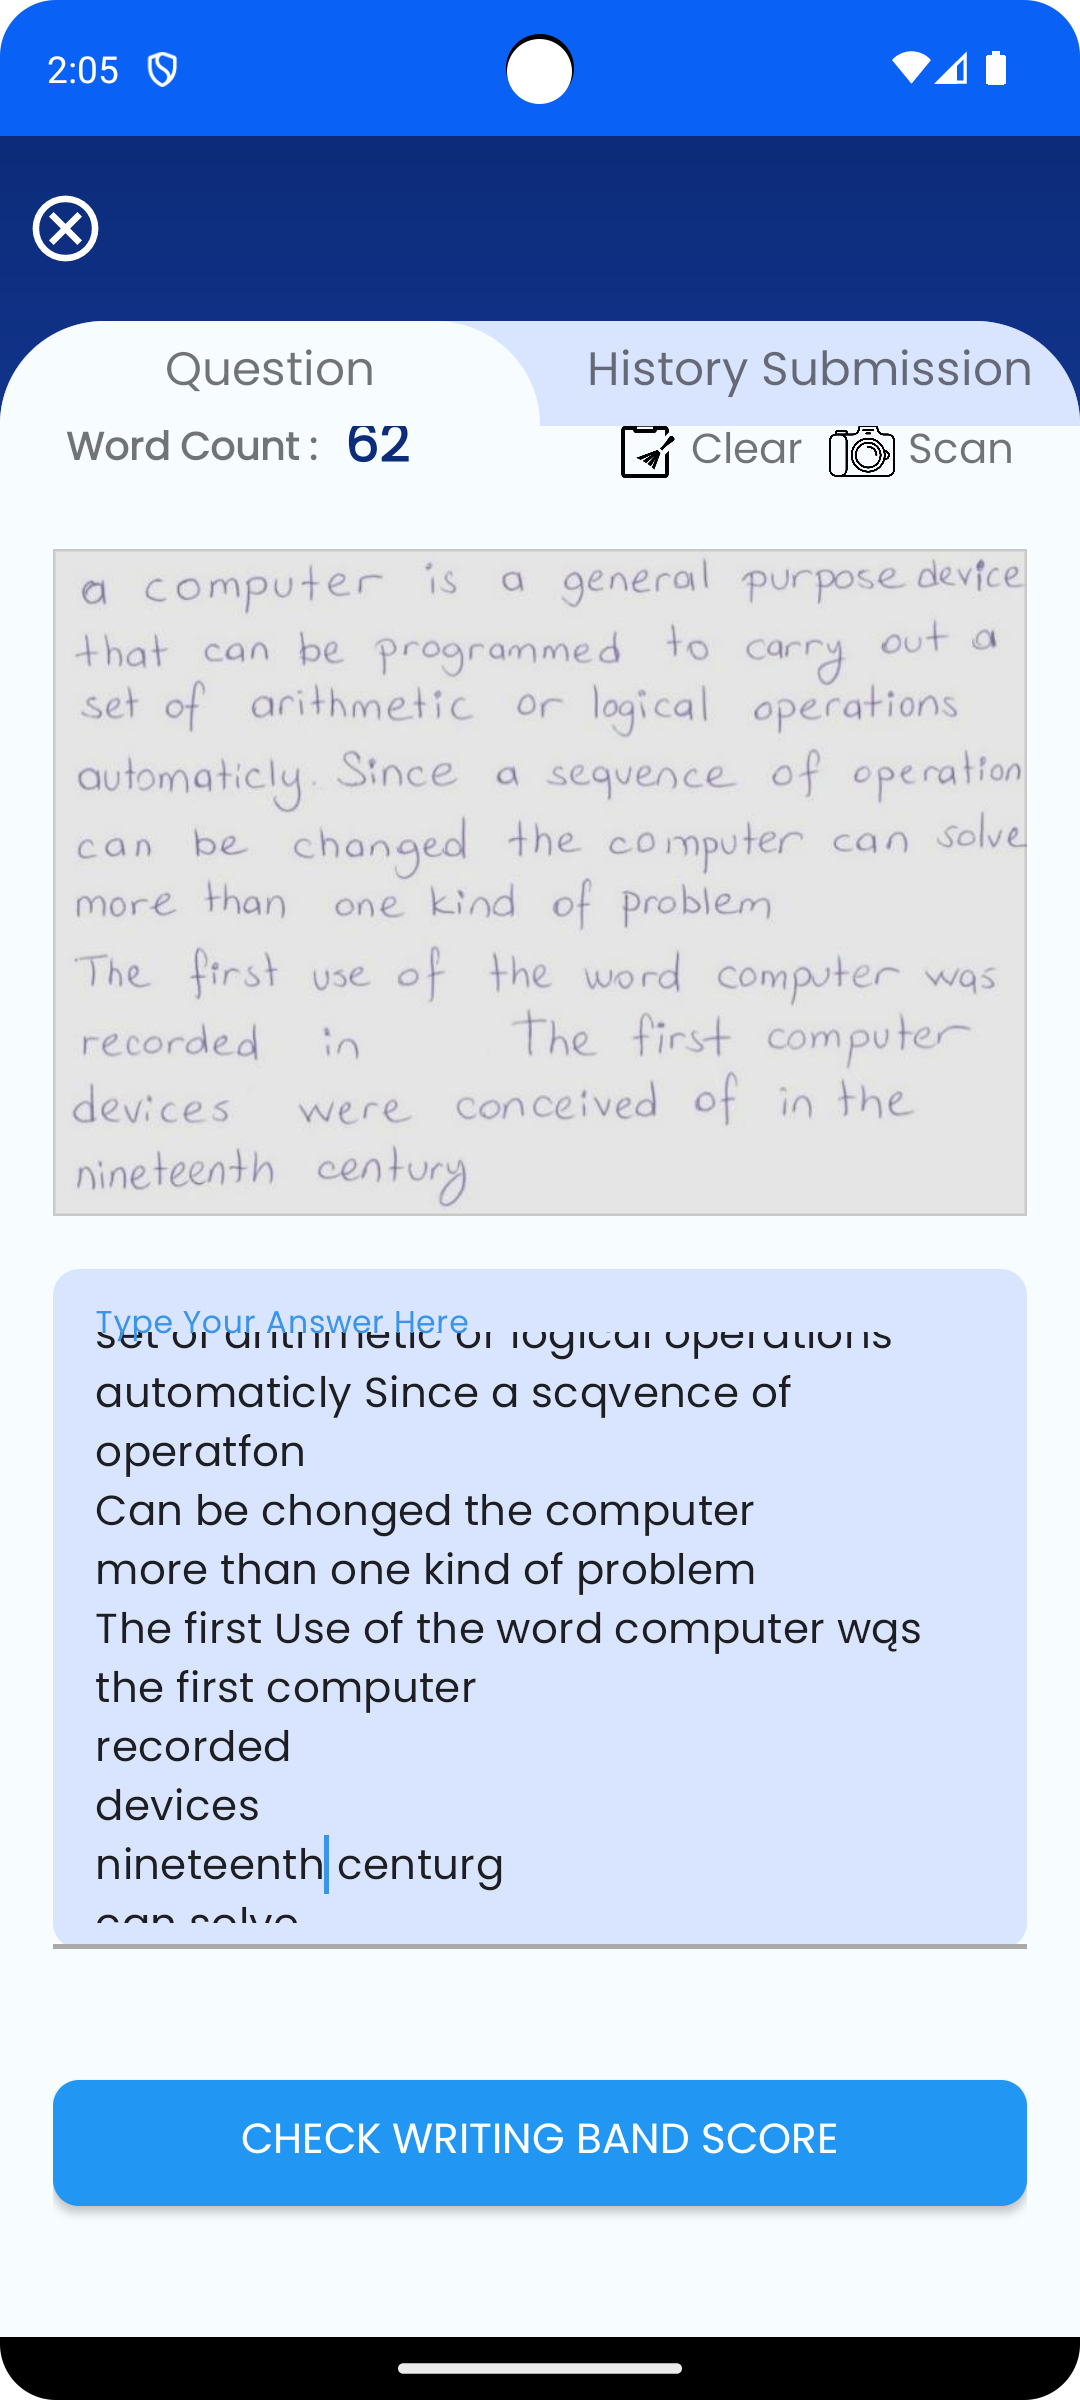 2:05
Question
History Submission
Word Count : 62
Clear
Scan
a computer is a general purpose device
that can be programmed to carry out a
set of arithmetic or logical operations
automaticly. Since a sequence of operation
can be changed the computer can solve
more than one kind of problem
The first use of the word computer was
recorded in The first computer
devices were conceived of in the
nineteenth century
Type Your Answer Here
set of arithmetic or logical operations
automaticly Since a scqvence of
operatfon
Can be chonged the computer
more than one kind of problem
The first Use of the word computer wąs
the first computer
recorded
devices
nineteenth centurg
can solve
CHECK WRITING BAND SCORE